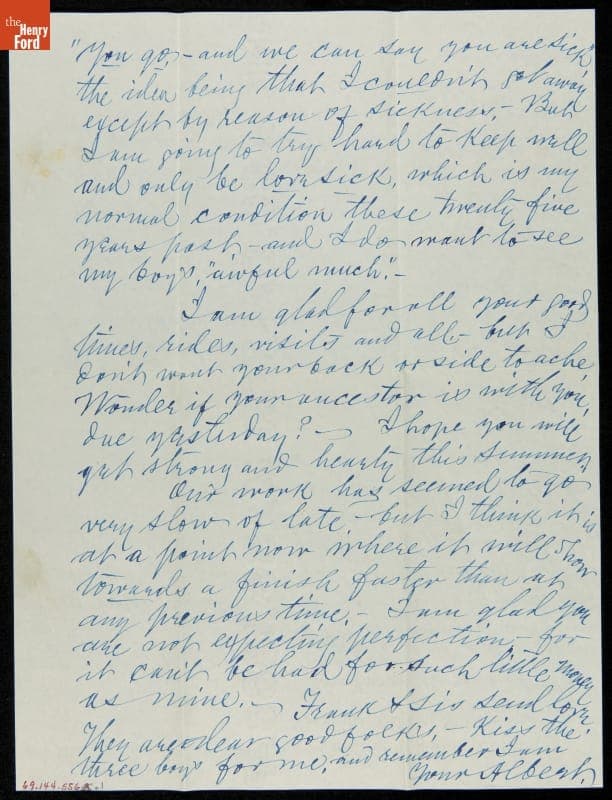 the
Henry
Ford
"You go, - and we can say you are sick"
the idea being that I couldn't get away
except by reason of sickness. - But
I am going to try hard to keep well
and only be lovesick, which is my
normal condition these twenty five
years past - and I do want to see
my boys, "awful much". -
I am glad for all your good
times, rides, visits and all - but I
don't want your back or side to ache
Wonder if your ancestor is with you,
due yesterday? - I hope you will
get strong and hearty this summer.
Our work has seemed to go
very slow of late - but I think it is
at a point now where it will show
towards a finish faster than at
any previous time. - I am glad you
are not expecting perfection - for
it can't be had for such little money
as mine. - Frank & Sis send love.
They are dear good folks. - Kiss the
three boys for me, and remember I am
Your Albert.
69.144.556.1